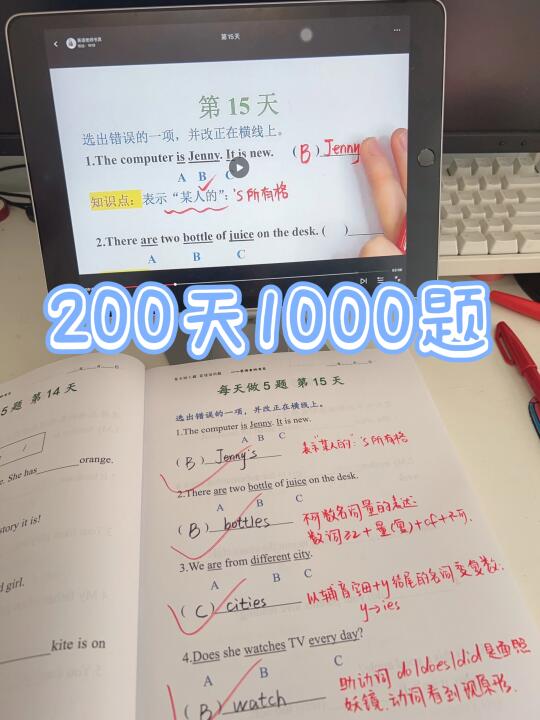 第15天
第 15 天
选出错误的一项，并改正在横线上。
1.The computer is Jenny. It is new. ( B ) Jenny
A B C
知识点：表示“某人的”：'s所有格
2.There are two bottle of juice on the desk. ( )
A B C
200天1000题
5 题 第 14 天
e. She has______orange.
story it is!
d girl.
kite is on
每天做 5 题 第 15 天
选出错误的一项，并改正在横线上。
1.The computer is Jenny. It is new.
A B C
( B ) Jenny's 表示“某人的”：'s所有格
2.There are two bottle of juice on the desk.
A B C
( B ) bottles 不可数名词量的表达：
数词≥2+量(复)+of+不可.
3.We are from different city.
A B C
( C ) cities 以辅音字母+y结尾的名词变复数.
y→ies
4.Does she watches TV every day?
A B C
( B ) watch 助动词 do/does/did 是面照
妖镜.动词看到现原形.